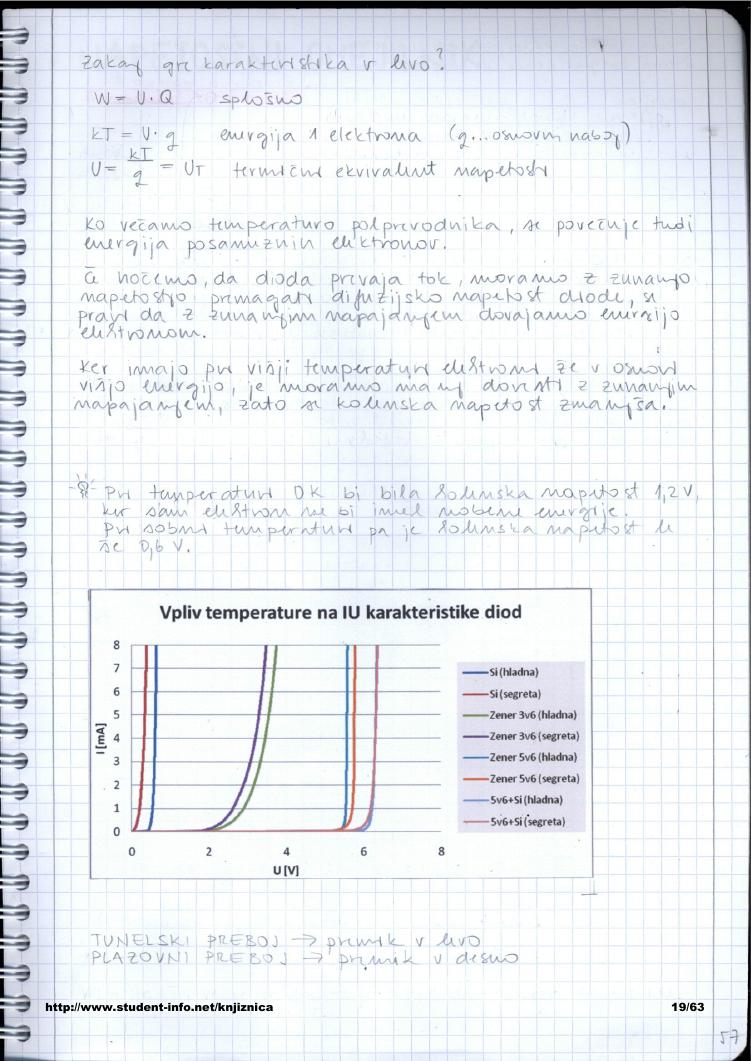 Zakaj gre karakteristika v levo?
W = U·Q splošno
kT = U·q energija 1 elektrona (q...osnovni naboj)
U = kT/q = UT termični ekvivalent napetosti
Ko večamo temperaturo polprevodnika, se povečuje tudi
energija posameznih elektronov.
Če hočemo, da dioda prevaja tok, moramo z zunanjo
napetostjo premagati difuzijsko napetost diode, se
pravi da z zunanjim napajanjem dovajamo energijo
elektronom.
Ker imajo pri višji temperaturi elektroni že v osnovi
višjo energijo, je moramo manj dovesti z zunanjim
napajanjem, zato se kolenska napetost zmanjša.
Pri temperaturi 0K bi bila kolenska napetost 1,2V,
ker sam elektron ne bi imel nobene energije.
Pri sobni temperaturi pa je kolenska napetost le
še 0,6 V.
Vpliv temperature na IU karakteristike diod
8
7
6
5
4
3
2
1
0
I [mA]
0 2 4 6 8
U [V]
Si (hladna)
Si (segreta)
Zener 3v6 (hladna)
Zener 3v6 (segreta)
Zener 5v6 (hladna)
Zener 5v6 (segreta)
5v6+Si (hladna)
5v6+Si (segreta)
TUNELSKI PREBOJ → premik v levo
PLAZOVNI PREBOJ → premik v desno
http://www.student-info.net/knjiznica 19/63
57